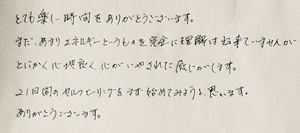 とても楽しい時間をありがとうございます。
まだ、あまりエネルギーというものを完全に理解は出来ていませんが
とにかく心地良く、心がいやされた感じがします。
21日間のセルフヒーリングをまず始めてみようと思います。
ありがとうございます。